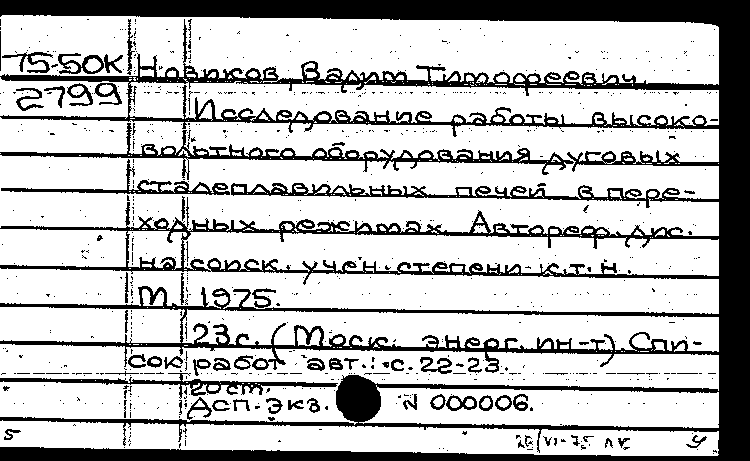 75-50К Новиков, Вадим Тимофеевич.
2799 Исследование работы высоко-
вольтного оборудования дуговых
сталеплавильных печей в пере-
ходных режимах. Автореф. дис.
на соиск. учен. степени к.т.н.
М., 1975.
23с. (Моск. энерг. ин-т). Спи-
сок работ авт.: с. 22-23.
20 см.
ДСП. Экз. N 000006.
5 У